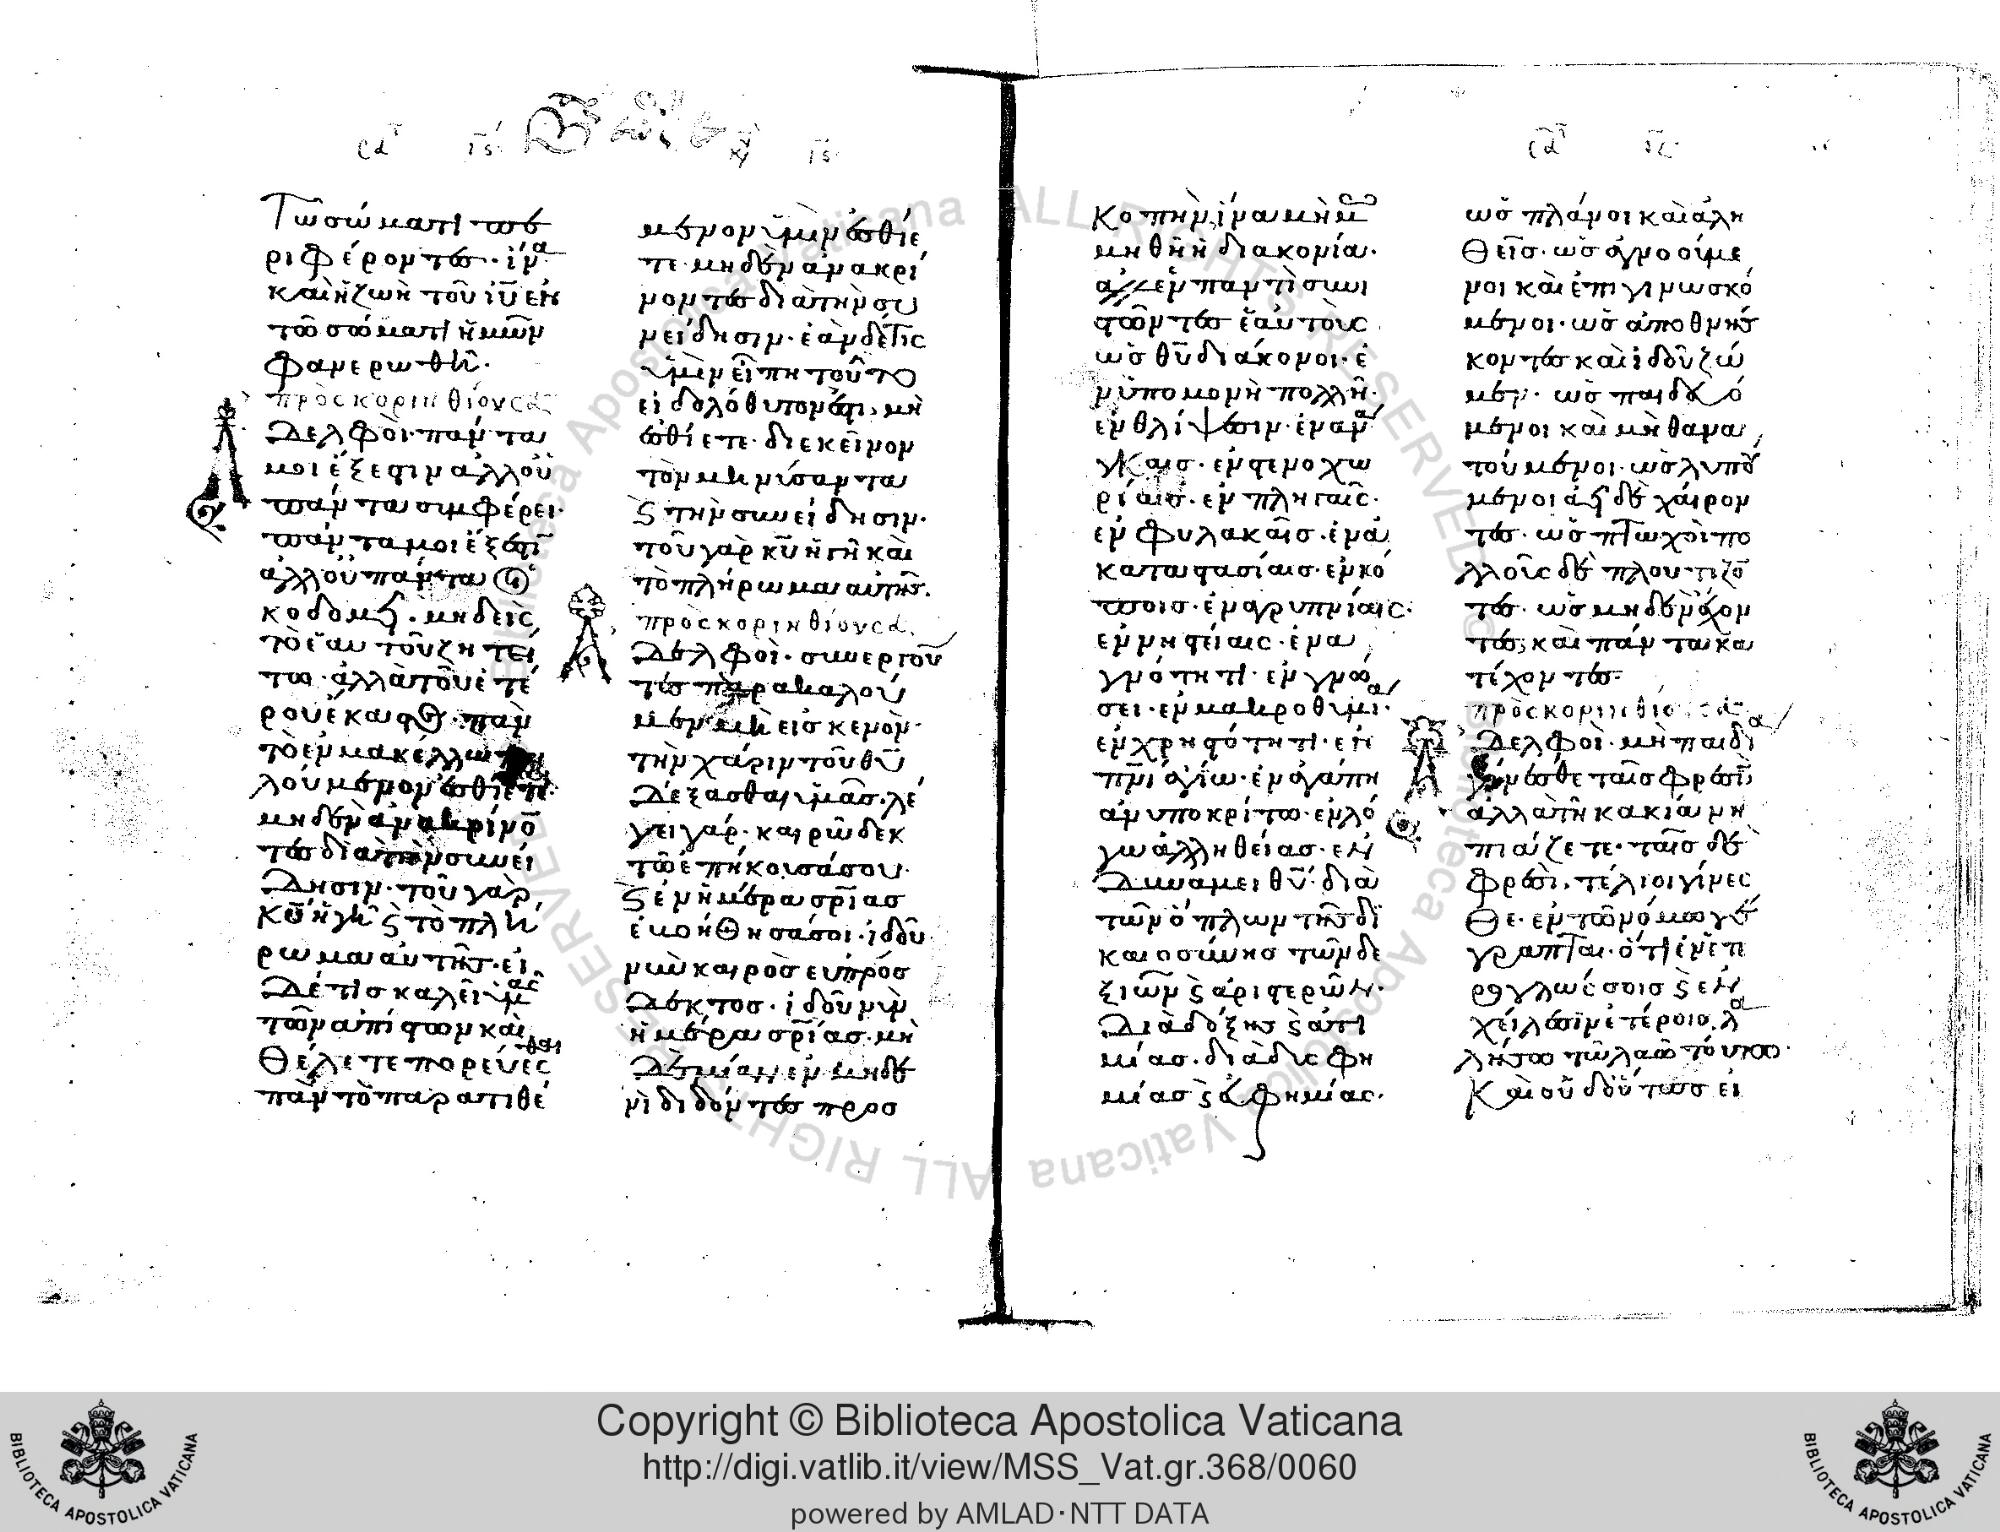 τῶ σώματι πε
ριφέροντες· ἵνα
καὶ ἡ ζωὴ τοῦ ἰῦ ἐν
τῶ σώματι ἡμῶν
φανερωθῆ·
πρὸς κορινθίους α
Ἀδελφοὶ· πάντα
μοι ἔξεστιν ἀλλ οὐ
πάντα συμφέρει·
πάντα μοι ἔξεστιν
ἀλλ οὐ πάντα οἰ
κοδομεῖ. μηδεὶς
τὸ ἑαυτοῦ ζητεί
τω· ἀλλὰ τοῦ ἑτέ
ρου ἕκαστος· πᾶν
τὸ ἐν μακέλλω πω
λούμενον ἐσθίετε·
μηδὲν ἀνακρίνον
τες διὰ τὴν συνεί
δησιν· τοῦ γὰρ
κῦ ἡ γῆ ϛ τὸ πλή
ρωμα αὐτῆς· εἰ
δέ τις καλεῖ ὑμᾶς
τῶν ἀπίστων καὶ
θέλετε πορεύεσθαι
πᾶν τὸ παρατιθέ
μενον ὑμῖν ἐσθίε
τε· μηδὲν ἀνακρί
νοντες διὰ τὴν συ
νείδησιν· ἐὰν δέ τις
ὑμῖν εἴπη τοῦτο
εἰδολόθυτον ἐστι, μὴ
ἐσθίετε· δι ἐκεῖνον
τὸν μηνύσαντα
ϛ τὴν συνείδησιν·
τοῦ γὰρ κῦ ἡ γῆ καὶ
τὸ πλήρωμα αὐτῆς.
πρὸς κορινθίους α.
Ἀδελφοὶ· συνεργοῦν
τες παρακαλοῦ
μεν μὴ εἰς κενὸν·
τὴν χάριν τοῦ θῦ
δέξασθαι ὑμᾶς· λέ
γει γάρ· καιρῶ δεκ
τῶ ἐπήκουσά σου·
ϛ ἐν ἡμέρα σρίας
ἐβοήθησά σοι· ἰδοῦ
νῦν καιρὸς εὐπρόσ
δεκτος· ἰδοῦ νῦν
ἡμέρα σρίας· μὴ
δεμίαν ἐν μηδε
νὶ διδόντες προσ
κοπὴν, ἵνα μὴ μω
μηθῆ ἡ διακονία·
ἀλλ ἐν παντὶ συνι
στῶντες ἑαυτοὺς
ὡς θῦ διάκονοι· ἐ
ν ὑπομονῆ πολλῆ·
ἐν θλίψεσιν· ἐν ἀνά
γκαις· ἐν στενοχω
ρίαις· ἐν πληγαῖς·
ἐν φυλακαῖς· ἐν ἀ
καταστασίαις· ἐν κό
ποις· ἐν ἀγρυπνίαις·
ἐν νηστίαις· ἐν ἁ
γνότητι· ἐν γνώ
σει· ἐν μακροθυμία·
ἐν χρηστότητι· ἐν
πνι ἁγίω· ἐν ἀγάπη
ἀνυποκρίτω· ἐν λό
γω ἀλληθείας· ἐν
δυνάμει θῦ· διὰ
τῶν ὅπλων τῆς δι
καιοσύνης τῶν δε
ξιῶν ϛ ἀριστερῶν·
διὰ δόξης ϛ ἀτι
μίας· διὰ δυσφη
μίας ϛ εὐφημίας·
ὡς πλάνοι καὶ ἀλη
θεῖς· ὡς ἀγνοούμε
νοι καὶ ἐπιγινωσκό
μενοι· ὡς ἀποθνήσ
κοντες καὶ ἰδοῦ ζῶ
μεν· ὡς παιδευό
μενοι καὶ μὴ θανα
τούμενοι· ὡς λυπού
μενοι ἀεὶ δὲ χαίρον
τες· ὡς πτωχοὶ πο
λλοὺς δὲ πλουτίζον
τες· ὡς μηδὲν ἔχον
τες, καὶ πάντα κα
τέχοντες·
πρὸς κορινθίους α
Ἀδελφοὶ· μὴ παιδία
γίνεσθε ταῖς φρεσὶν
ἀλλὰ τῆ κακία νη
πιάζετε· ταῖς δὲ
φρεσὶ, τέλιοι γίνεσ
θε· ἐν τῶ νόμω γέ
γραπται· ὅτι ἐν ἑτε
ρογλώσσοις ϛ ἐν
χείλεσιν ἑτέροις λα
λήσω τῶ λαῶ τούτω·
καὶ οὐδ οὕτως εἰ
Copyright © Biblioteca Apostolica Vaticana
http://digi.vatlib.it/view/MSS_Vat.gr.368/0060
powered by AMLAD·NTT DATA
BIBLIOTECA APOSTOLICA VATICANA
BIBLIOTECA APOSTOLICA VATICANA